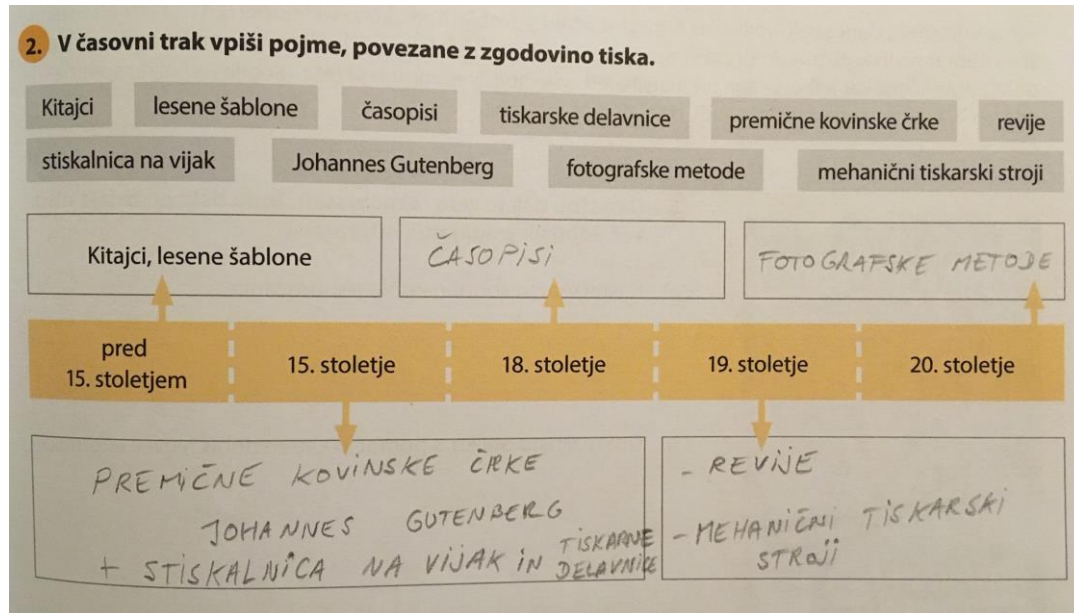 2. V časovni trak vpiši pojme, povezane z zgodovino tiska.
Kitajci lesene šablone časopisi tiskarske delavnice premične kovinske črke revije
stiskalnica na vijak Johannes Gutenberg fotografske metode mehanični tiskarski stroji
Kitajci, lesene šablone
ČASOPISI
FOTOGRAFSKE METODE
pred
15. stoletjem
15. stoletje
18. stoletje
19. stoletje
20. stoletje
PREMIČNE KOVINSKE ČRKE
JOHANNES GUTENBERG
+ STISKALNICA NA VIJAK IN TISKARNE
DELAVNICE
- REVIJE
- MEHANIČNI TISKARSKI
STROJI